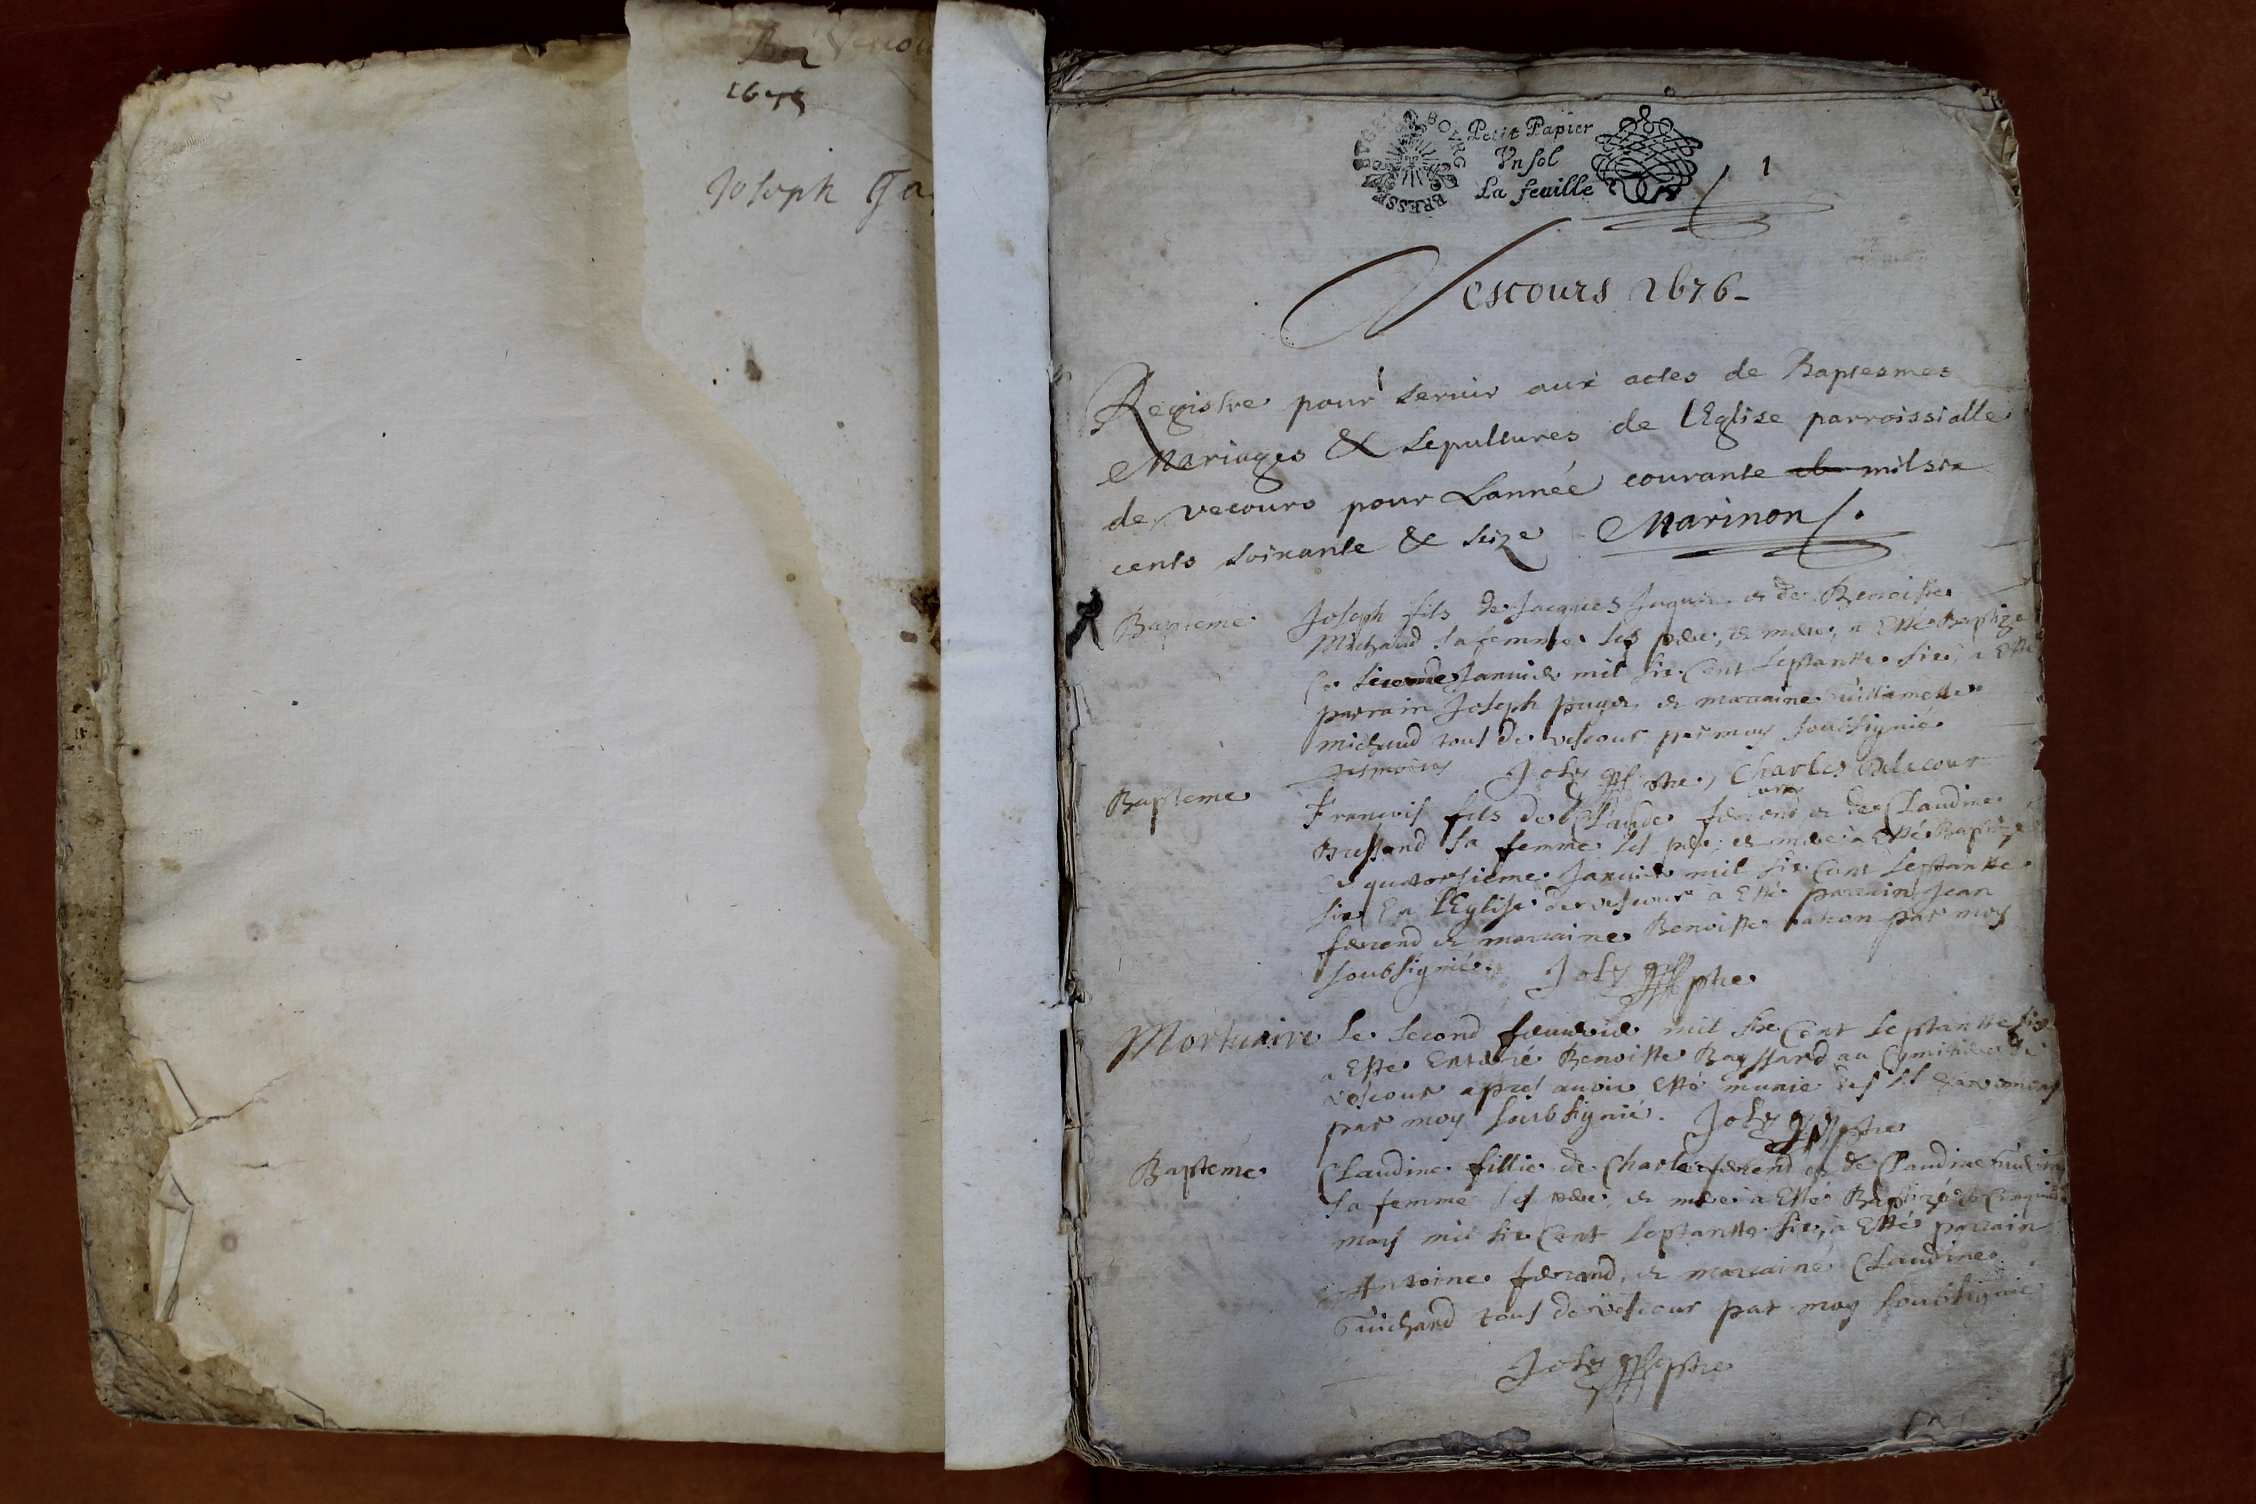 1675
Joseph
BOURG BRESSE
Petit Papier
Vn sol
La feuille
1
Vescours 1676
Registre pour seruir aux actes de Baptesmes
Mariages & sepultures de lEglise parroissialle
de vecours pour Lannée courante mil six
cents soixante & seize Marinon
Bapteme Joseph fils de Jacques et de Benoiste
Michaud sa femme ses pere, et mere, a Esté Baptizé
Ce second Januier mil six Cent Septante six, a Esté
parrain Joseph puger et marraine Guillamette
michaud tous de vescour par moy soubsignié
Joly ptre, Charles Delacour
Bapteme Francois fils de Claude ferrand et de Claudine
Bressand sa femme ses pere, et mere a Esté Baptizé
Ce quatorsieme Januier mil six Cent Septante
six En lEglise de vescour a Esté parrain Jean
ferrand et marraine Benoiste par moy
soubsignié. Joly ptre
Mortuaire Le second feburier mil six Cent Septante six
a Esté Enterré Benoiste Boyssard au Cymitiere de
vescour apres auoir Esté munie des Sts Sacremens
par moy soubsignié. Joly ptre
Bapteme Claudine fillie de Charle ferrand et de Claudine
sa femme ses pere, et mere a Esté Baptizée le
mars mil six Cent Septante six, a Esté parrain
Antoine ferrand, et marraine Claudine
Guichard tous de vescour par moy soubsignié
Joly ptre